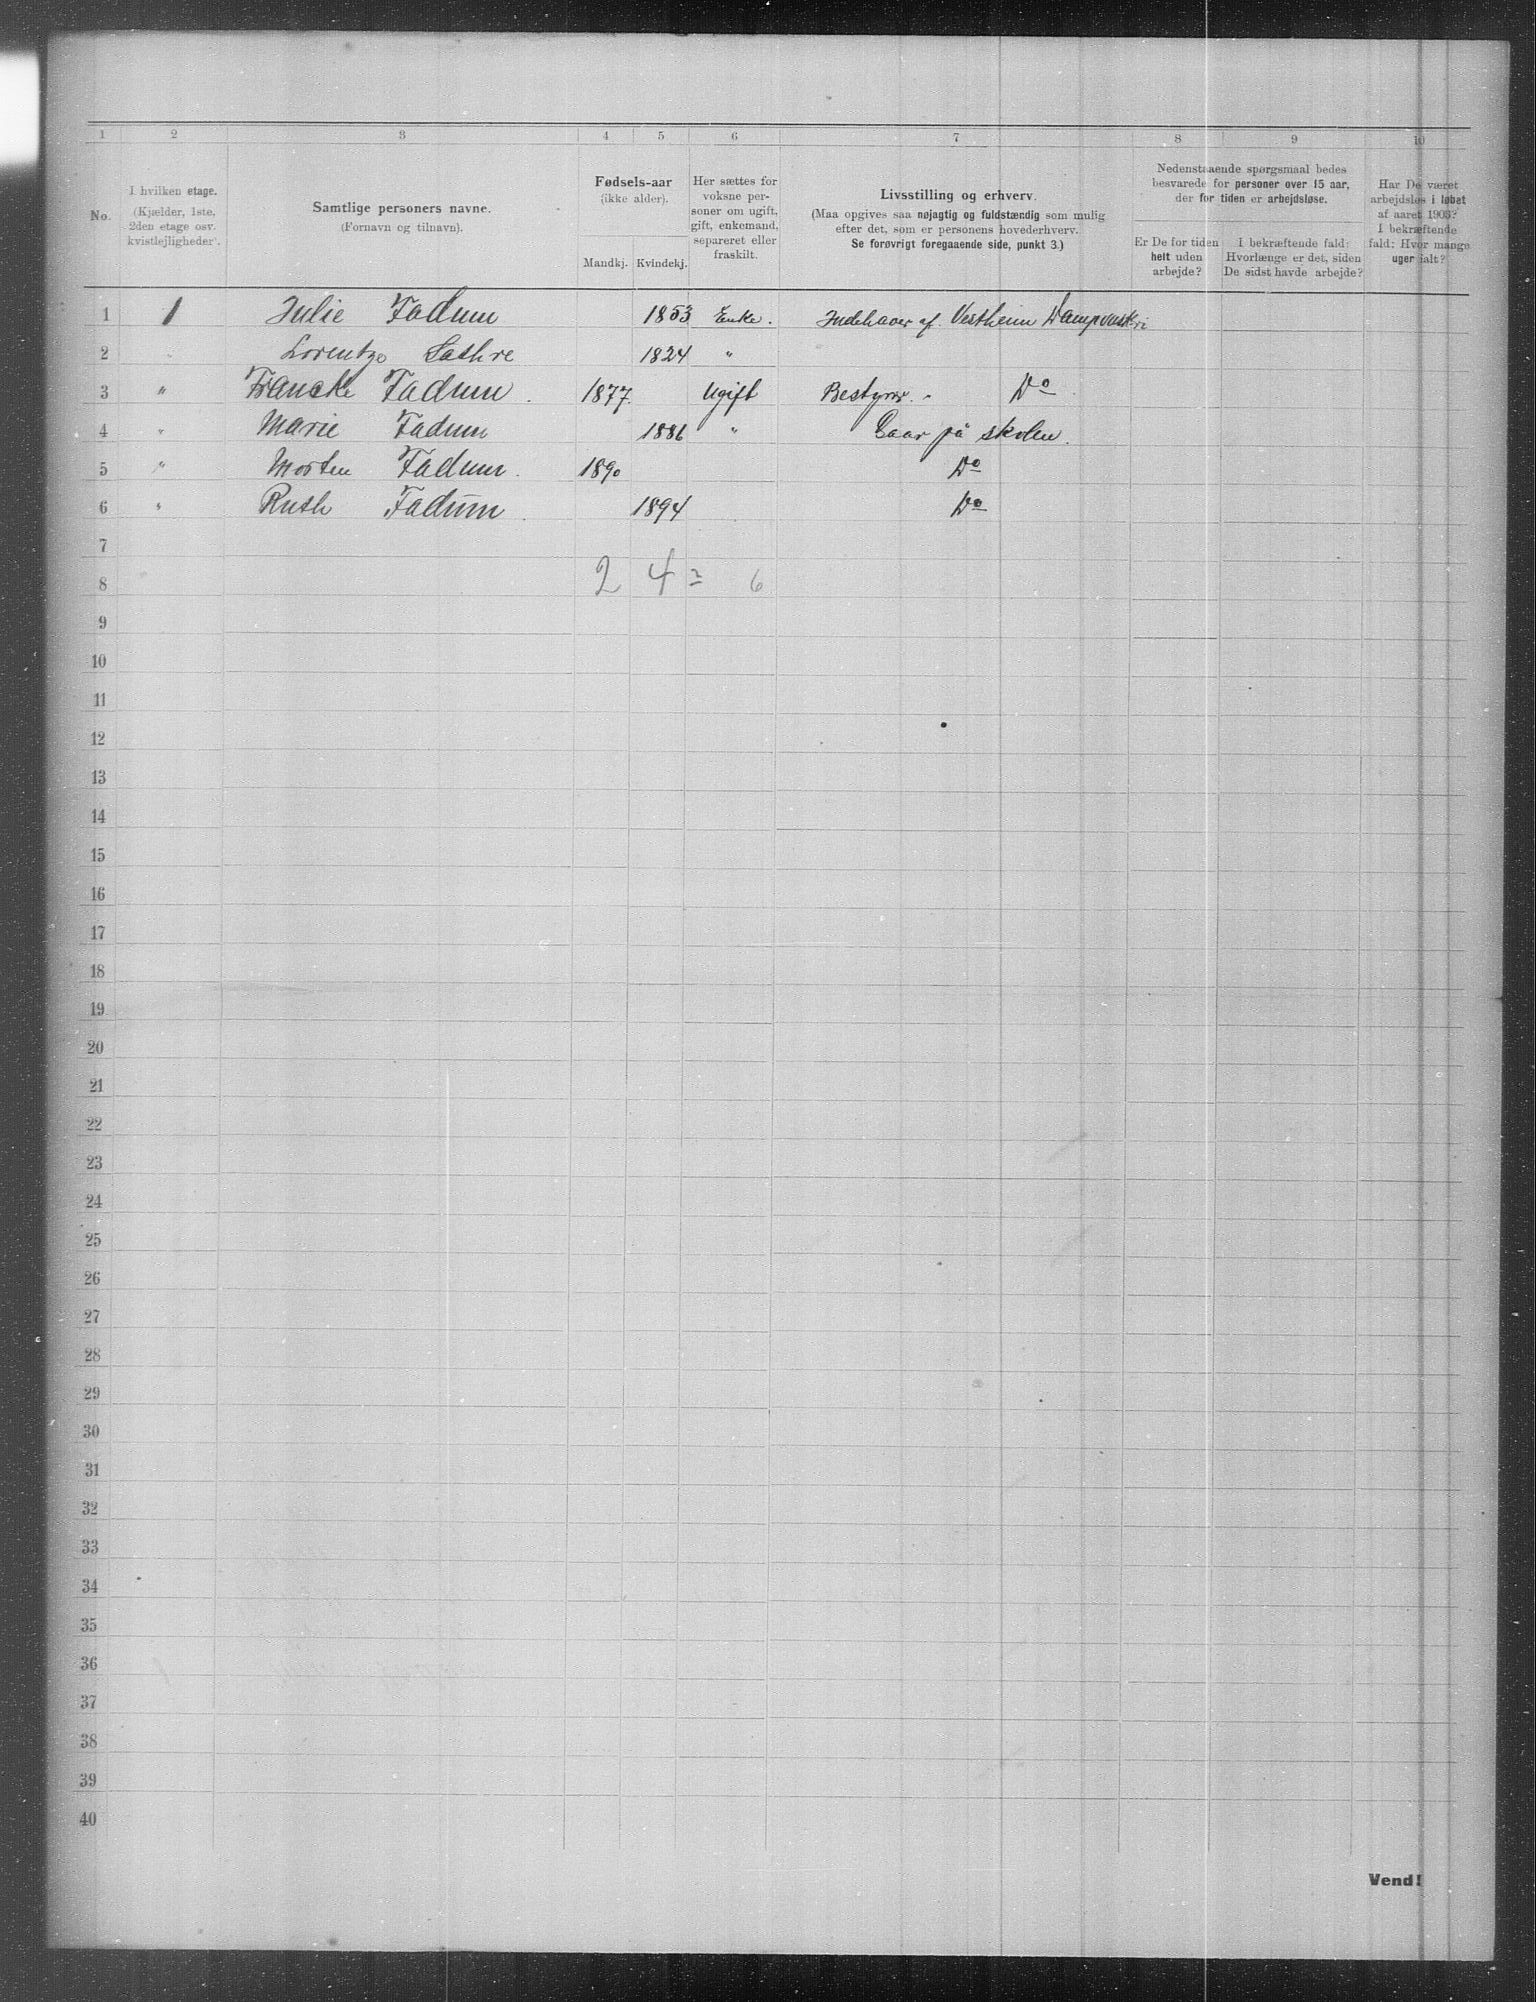 1 2 3 4 5 6 7 8 9 10
No.
I hvilken etage.
(Kjælder, 1ste,
2den etage osv.
kvistlejligheder).
Samtlige personers navne.
(Fornavn og tilnavn).
Fødsels-aar
(ikke alder).
Mandkj. Kvindekj.
Her sættes for
voksne per-
soner om ugift,
gift, enkemand,
separeret eller
fraskilt.
Livsstilling og erhverv.
(Maa opgives saa nøjagtig og fuldstændig som mulig
efter det, som er personens hovederhverv.
Se forøvrigt foregaaende side, punkt 3.)
Nedenstaaende spørgsmaal bedes
besvarede for personer over 15 aar,
der for tiden er arbejdsløse.
Er De for tiden
helt uden
arbejde?
I bekræftende fald:
Hvorlænge er det, siden
De sidst havde arbejde?
Har De været
arbejdsløs i løbet
af aaret 1903?
I bekræftende
fald: Hvor mange
uger ialt?
1 1 Julie Fadum 1853 Enke. Indehaver af Vestheim Dampvaskri
2 " Lorentze Sathre 1824 "
3 " Francke Fadum. 1877. Ugift Bestyrer " Do
4 " Marie Fadum 1886 " Gaar på skolen.
5 " Morten Fadum. 1890 Do
6 " Ruth Fadum. 1894 Do
7
8 2 4 = 6
9
10
11
12
13
14
15
16
17
18
19
20
21
22
23
24
25
26
27
28
29
30
31
32
33
34
35
36
37
38
39
40
Vend!